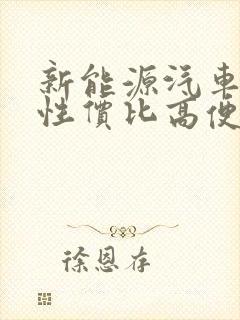 新能源汽車
性價比高便
徐恩存